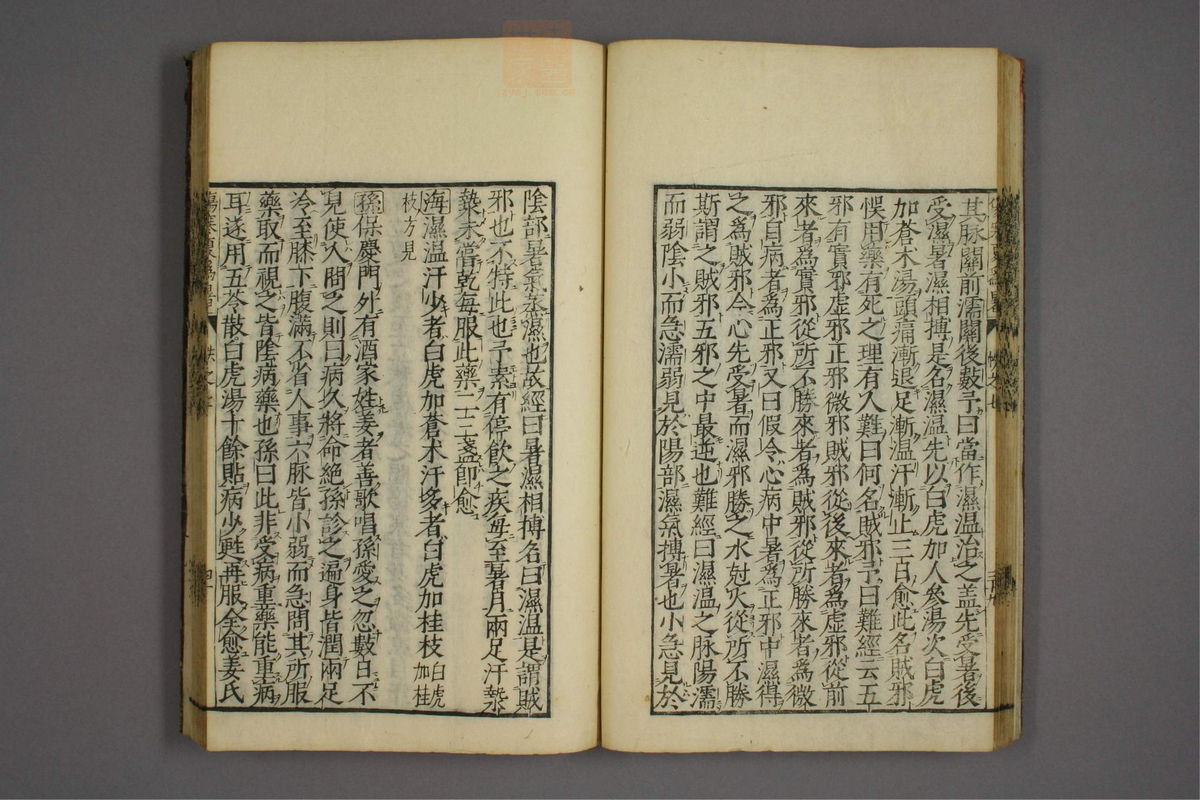 其脉關前濡關後數予曰當作濕温治之盖先受暑後
受濕暑濕相搏是名濕温先以白虎加人參湯次白虎
加蒼术湯頭痛漸退足漸温汗漸止三日愈此名賊邪
悮用藥有死之理有人難曰何名賊邪予曰難經云五
邪有實邪虚邪正邪微邪賊邪從後來者為虚邪從前
來者為實邪從所不勝來者為賊邪從所勝來者為微
邪自病者為正邪又曰假令心病中暑為正邪中濕得
之為賊邪今心先受暑而濕邪勝之水尅火從所不勝
斯謂之賊邪五邪之中最逆也難經曰濕温之脉陽濡
而弱陰小而急濡弱見於陽部濕氣搏暑也小急見於
陰部暑氣蒸濕也故經曰暑濕相搏名曰濕温是謂賊
邪也不特此也予素有停飲之疾每至暑月兩足汗漐
漐未嘗乾每服此藥二三盞即愈
海濕温汗少者白虎加蒼术汗多者白虎加桂枝白虎加桂
枝方見
孫保慶門外有酒家姓姜者善歌唱孫愛之忽數日不
見使人問之則曰病久將命絶孫診之遍身皆潤兩足
冷至膝下腹滿不省人事六脉皆小弱而急問其所服
藥取而視之皆陰病藥也孫曰此非受病重藥能重病
耳遂用五苓散白虎湯十餘貼病少甦再服全愈姜氏